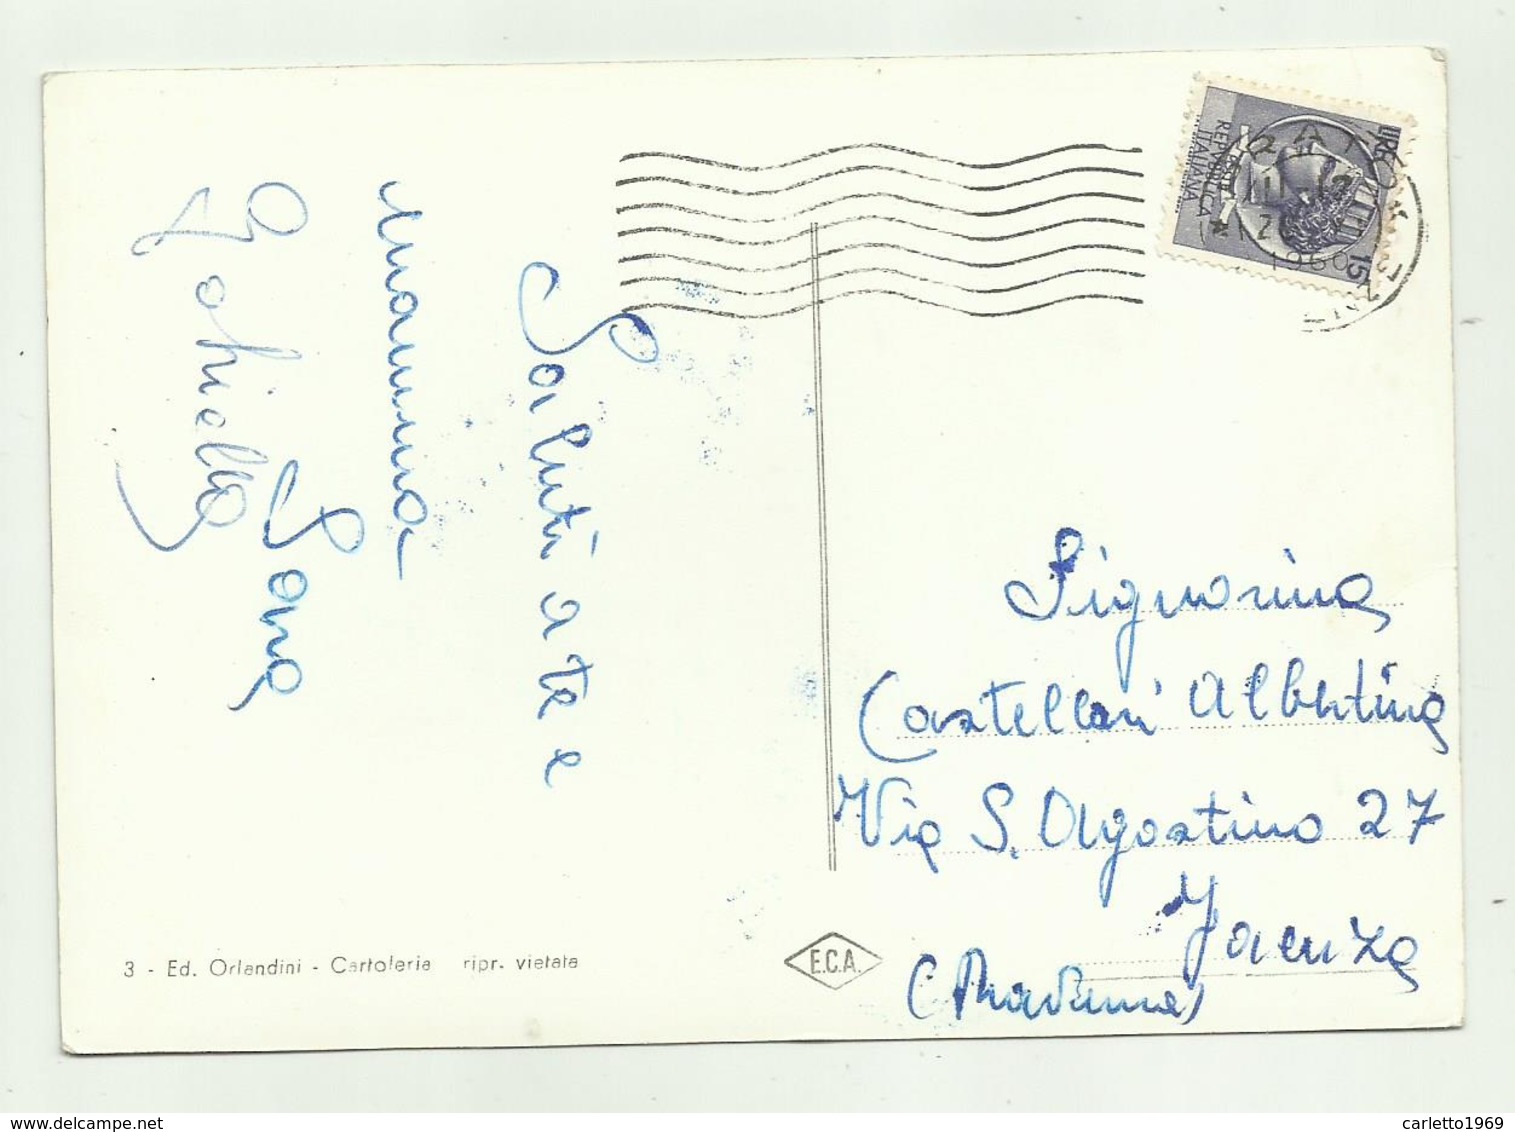 Saluti a te e
mamma
Sona
Gabriella
Signorina
Castellari Albertina
Via S. Agostino 27
Faenza
(Ravenna)
REPUBBLICA
ITALIANA
LIRE
15
PRATO
1960
3 - Ed. Orlandini - Cartoleria ripr. vietata
E.C.A.
delcampe.net
carletto1969